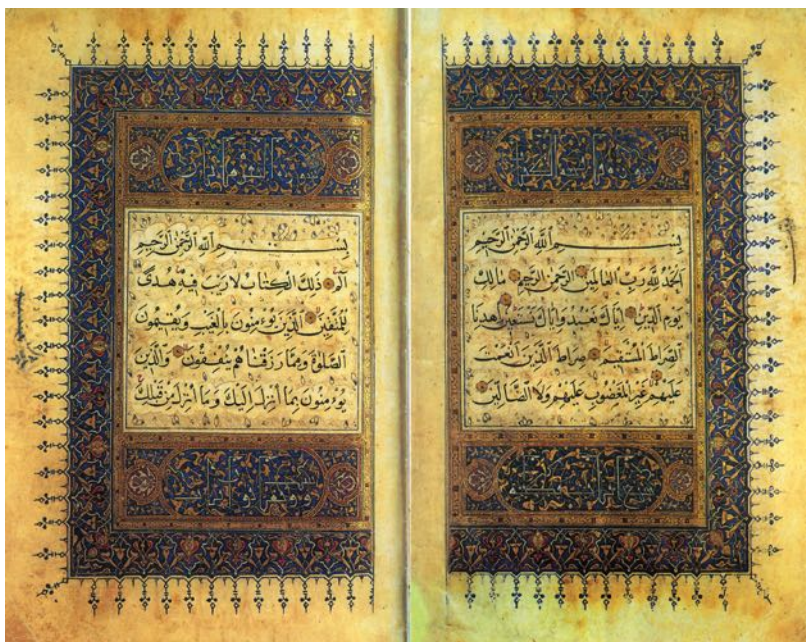 بِسْمِ اللَّهِ الرَّحْمٰنِ الرَّحِيمِ
اَلْحَمْدُ لِلَّهِ رَبِّ الْعَالَمِينَ الرَّحْمٰنِ الرَّحِيمِ مَالِكِ
يَوْمِ الدِّينِ اِيَّاكَ نَعْبُدُ وَاِيَّاكَ نَسْتَعِينُ اِهْدِنَا
الصِّرَاطَ الْمُسْتَقِيمَ صِرَاطَ الَّذِينَ اَنْعَمْتَ
عَلَيْهِمْ غَيْرِ الْمَغْضُوبِ عَلَيْهِمْ وَلَا الضَّالِّينَ
سورة البقرة
بِسْمِ اللَّهِ الرَّحْمٰنِ الرَّحِيمِ
الٓمٓ ذٰلِكَ الْكِتَابُ لَا رَيْبَ فِيهِ هُدًى
لِلْمُتَّقِينَ الَّذِينَ يُؤْمِنُونَ بِالْغَيْبِ وَيُقِيمُونَ
الصَّلٰوةَ وَمِمَّا رَزَقْنَاهُمْ يُنْفِقُونَ وَالَّذِينَ
يُؤْمِنُونَ بِمَا اُنْزِلَ اِلَيْكَ وَمَا اُنْزِلَ مِنْ قَبْلِكَ